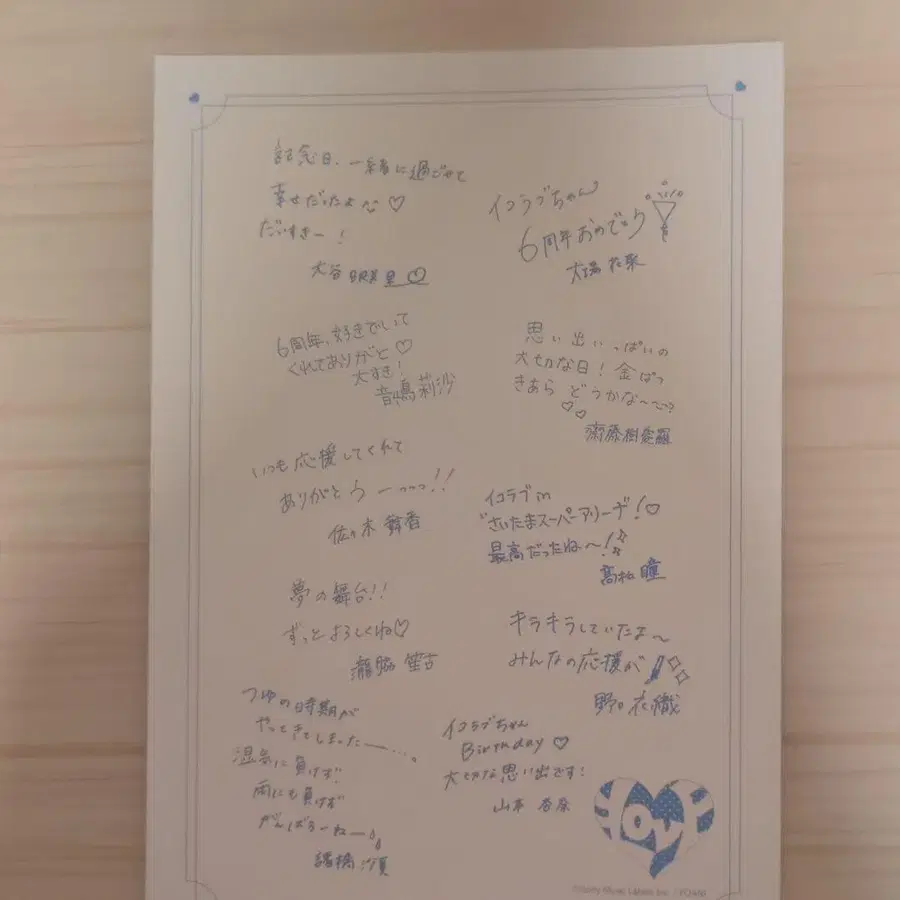 記念日、一緒に過ごせて
幸せだったよ♡
だいすきー！
大谷映美里♡
6周年、好きでいて
くれてありがと♡
大すき！
音嶋莉沙
いつも応援してくれて
ありがとうーーッッッ!!
佐々木舞香
夢の舞台!!
ずっとよろしくね♡
瀧脇笙古
つゆの時期が
やってきてしまったー…。
湿気に負けず！
雨にも負けず
がんばろーねー
諸橋沙夏
イコラブちゃん
6周年おめでとう
大場花菜
思い出いっぱいの
大切な日！金ぱつ
きあら どうかな〜??
齋藤樹愛羅
イコラブ in
さいたまスーパーアリーナ！♡
最高だったね〜！
髙松瞳
キラキラしていたま〜
みんなの応援が
野口衣織
イコラブちゃん
Birthday ♡
大切な思い出です！
山本杏奈